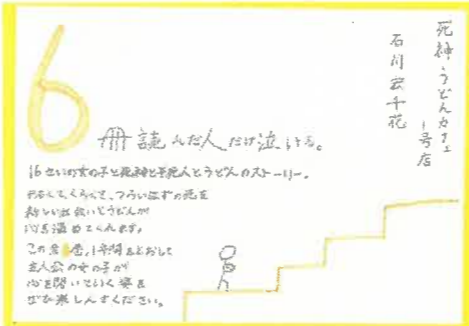 死神うどんカフェ
1号店
石川宏千花
6
冊 読んだ人だけ泣ける。
16さいの女の子と死神と半死人とうどんのストーリー。
つらいはずの死を
新しい出会いとうどんが
心を温めてくれます。
この1年間をとおして
主人公の女の子が
心を開いていく姿を
ぜひ楽しんでください。